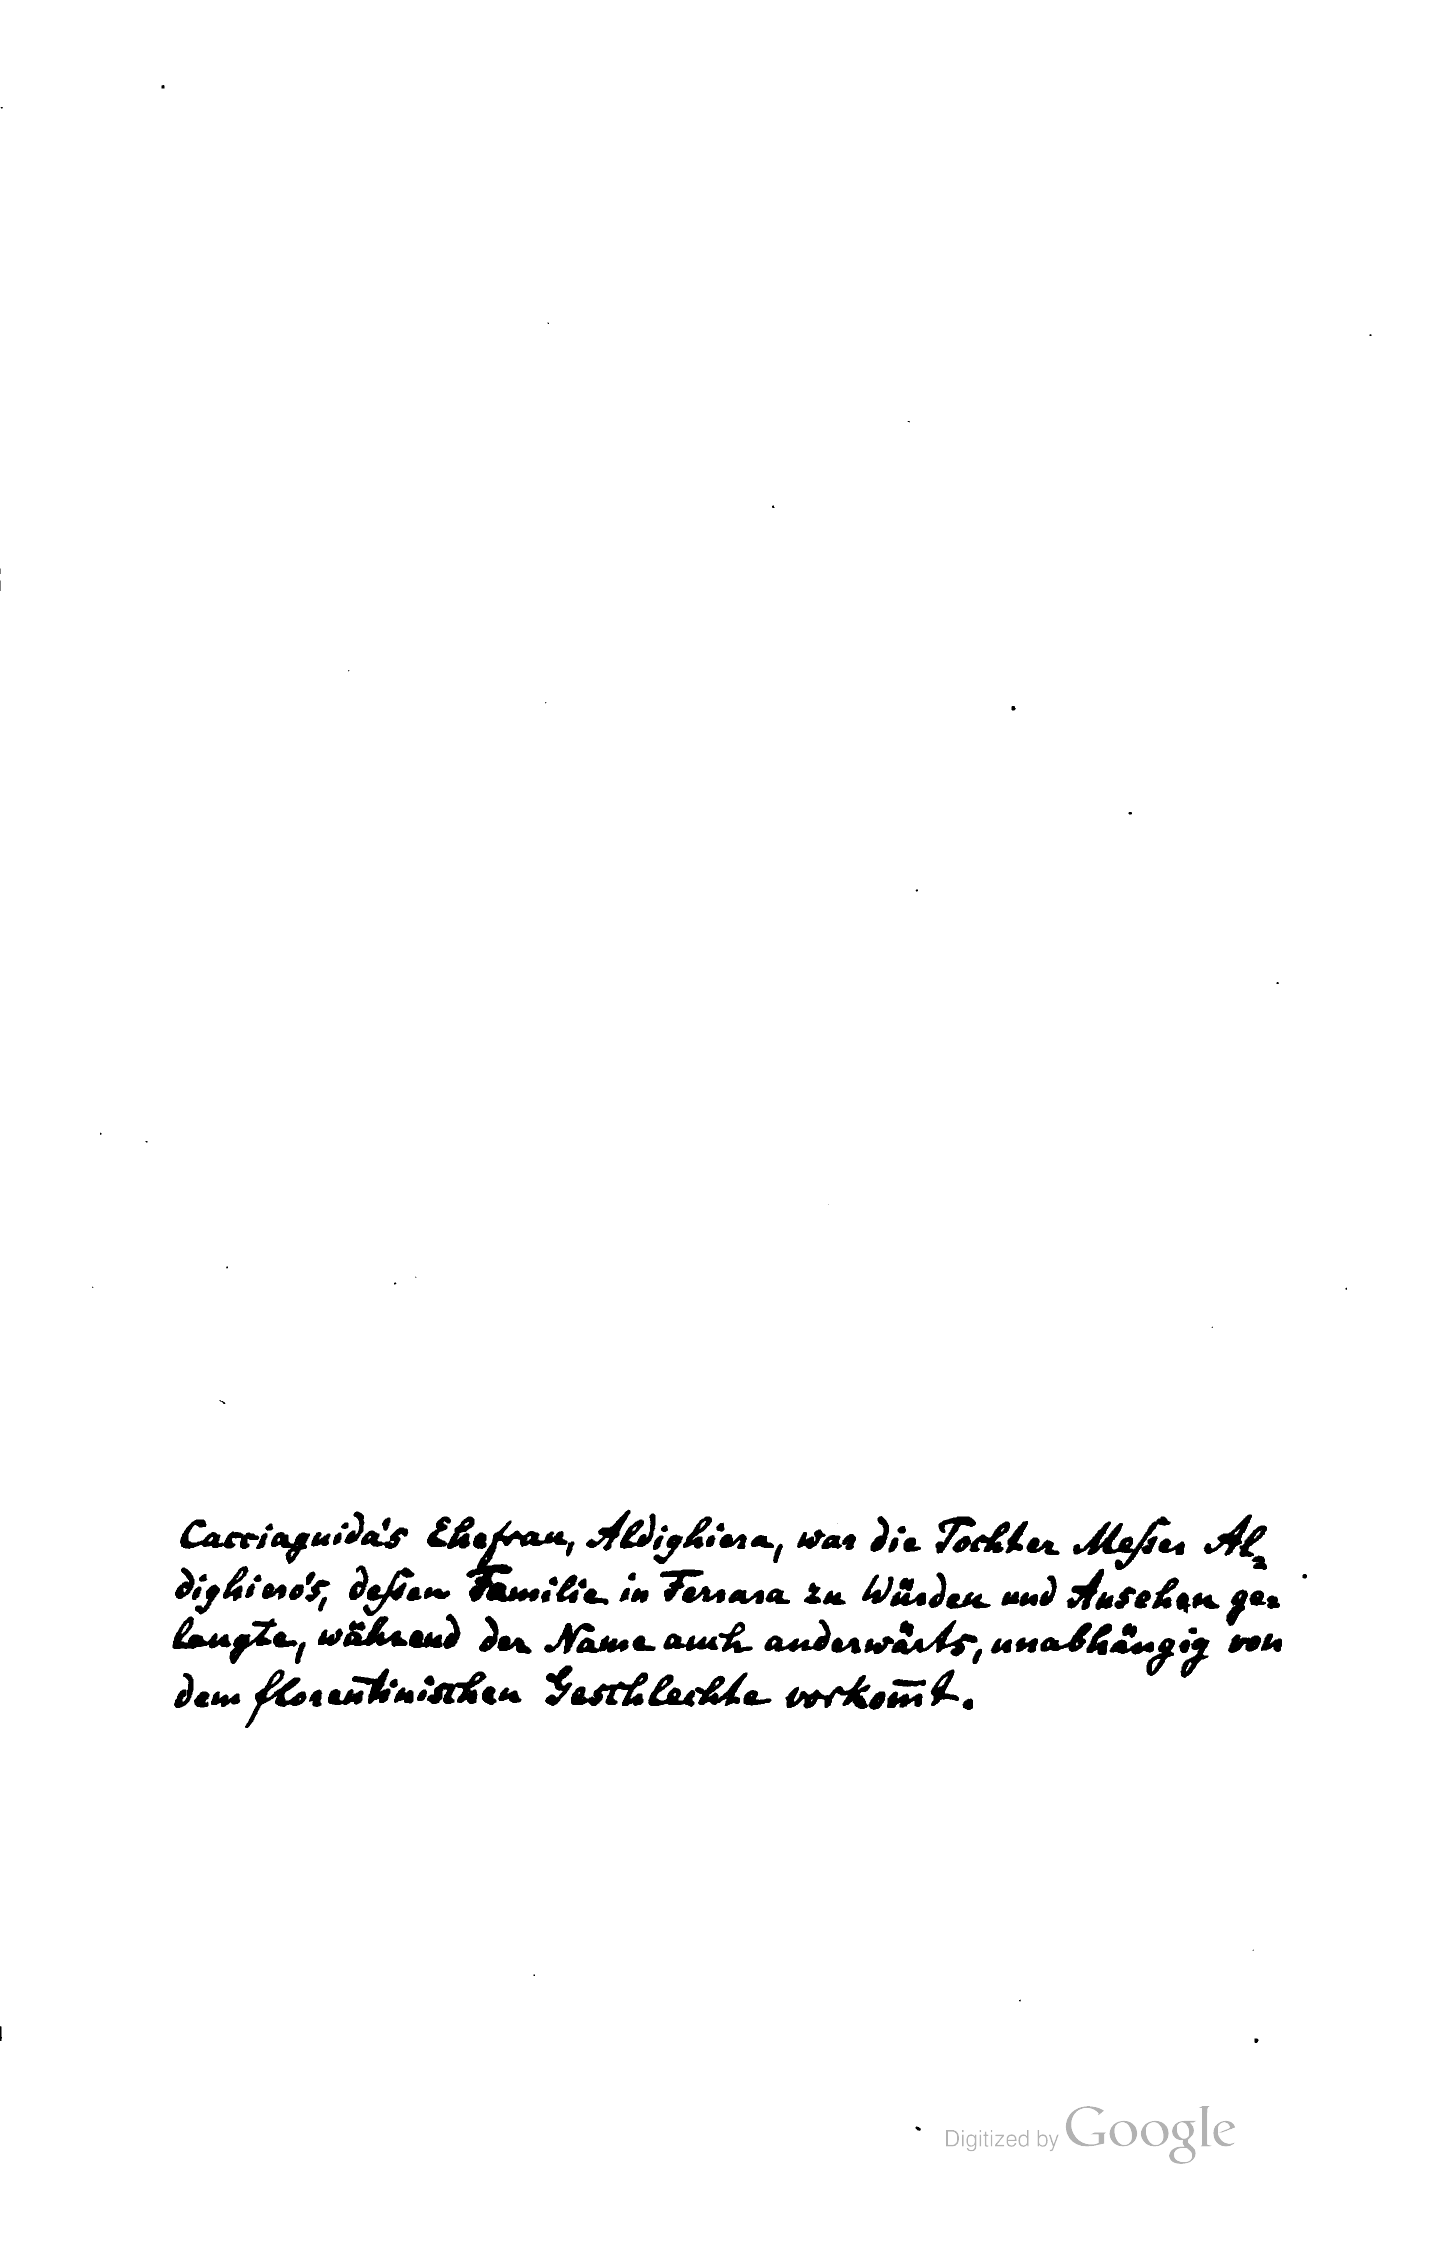 Cacciaguida's Ehefrau, Aldighiera, war die Tochter Meßer Al-
dighiero's, deßen Familie in Ferrara zu Würden und Ansehen ge-
langte, während der Name auch anderwärts, unabhängig von
dem florentinischen Geschlechte vorkom̄t.
Digitized by Google